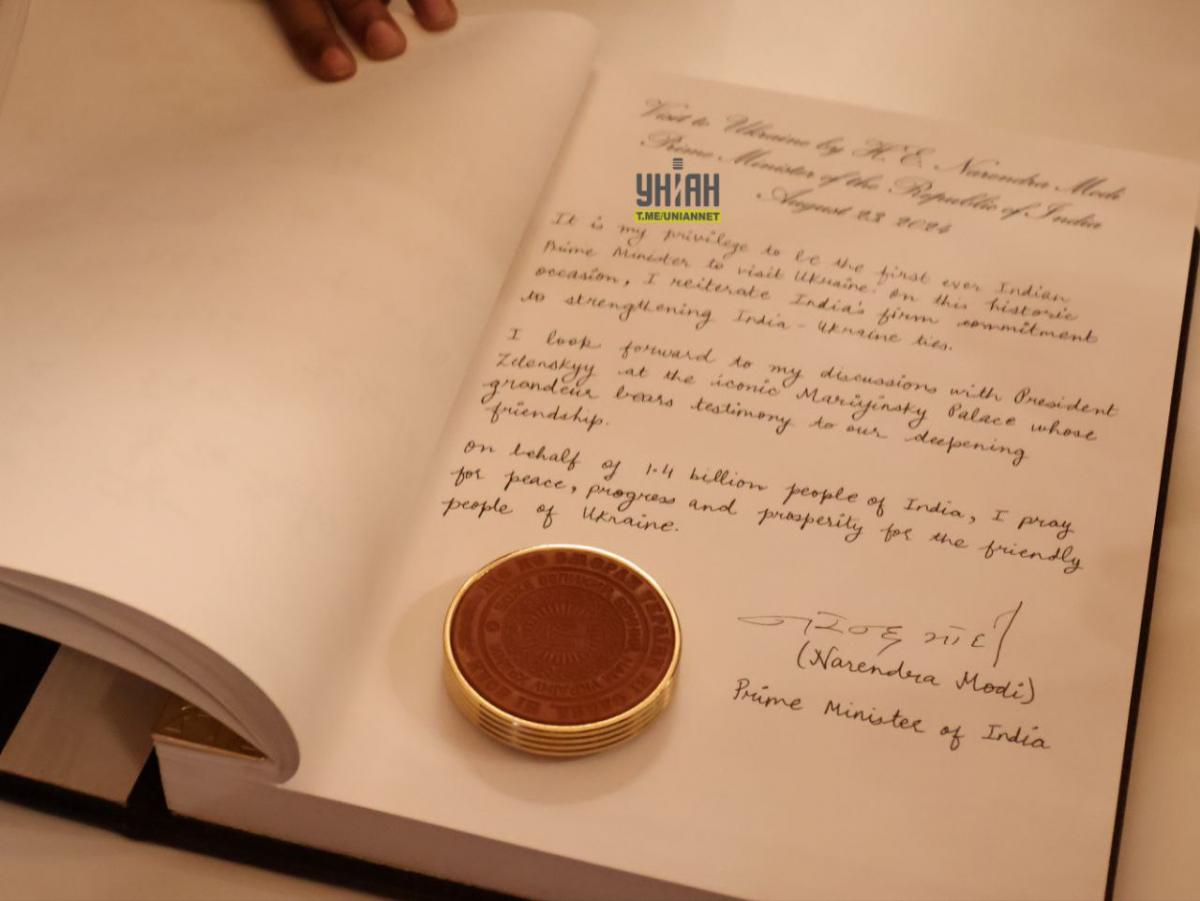 Visit to Ukraine by H. E. Narendra Modi
Prime Minister of the Republic of India
August 23 2024
УНІАН
T.ME/UNIANNET
It is my privilege to be the first ever Indian
Prime Minister to visit Ukraine. On this historic
occasion, I reiterate India's firm commitment
to strengthening India - Ukraine ties.
I look forward to my discussions with President
Zelenskyy at the iconic Mariyinsky Palace whose
grandeur bears testimony to our deepening
friendship.
On behalf of 1.4 billion people of India, I pray
for peace, progress and prosperity for the friendly
people of Ukraine.
नरेन्द्र मोदी
(Narendra Modi)
Prime Minister of India